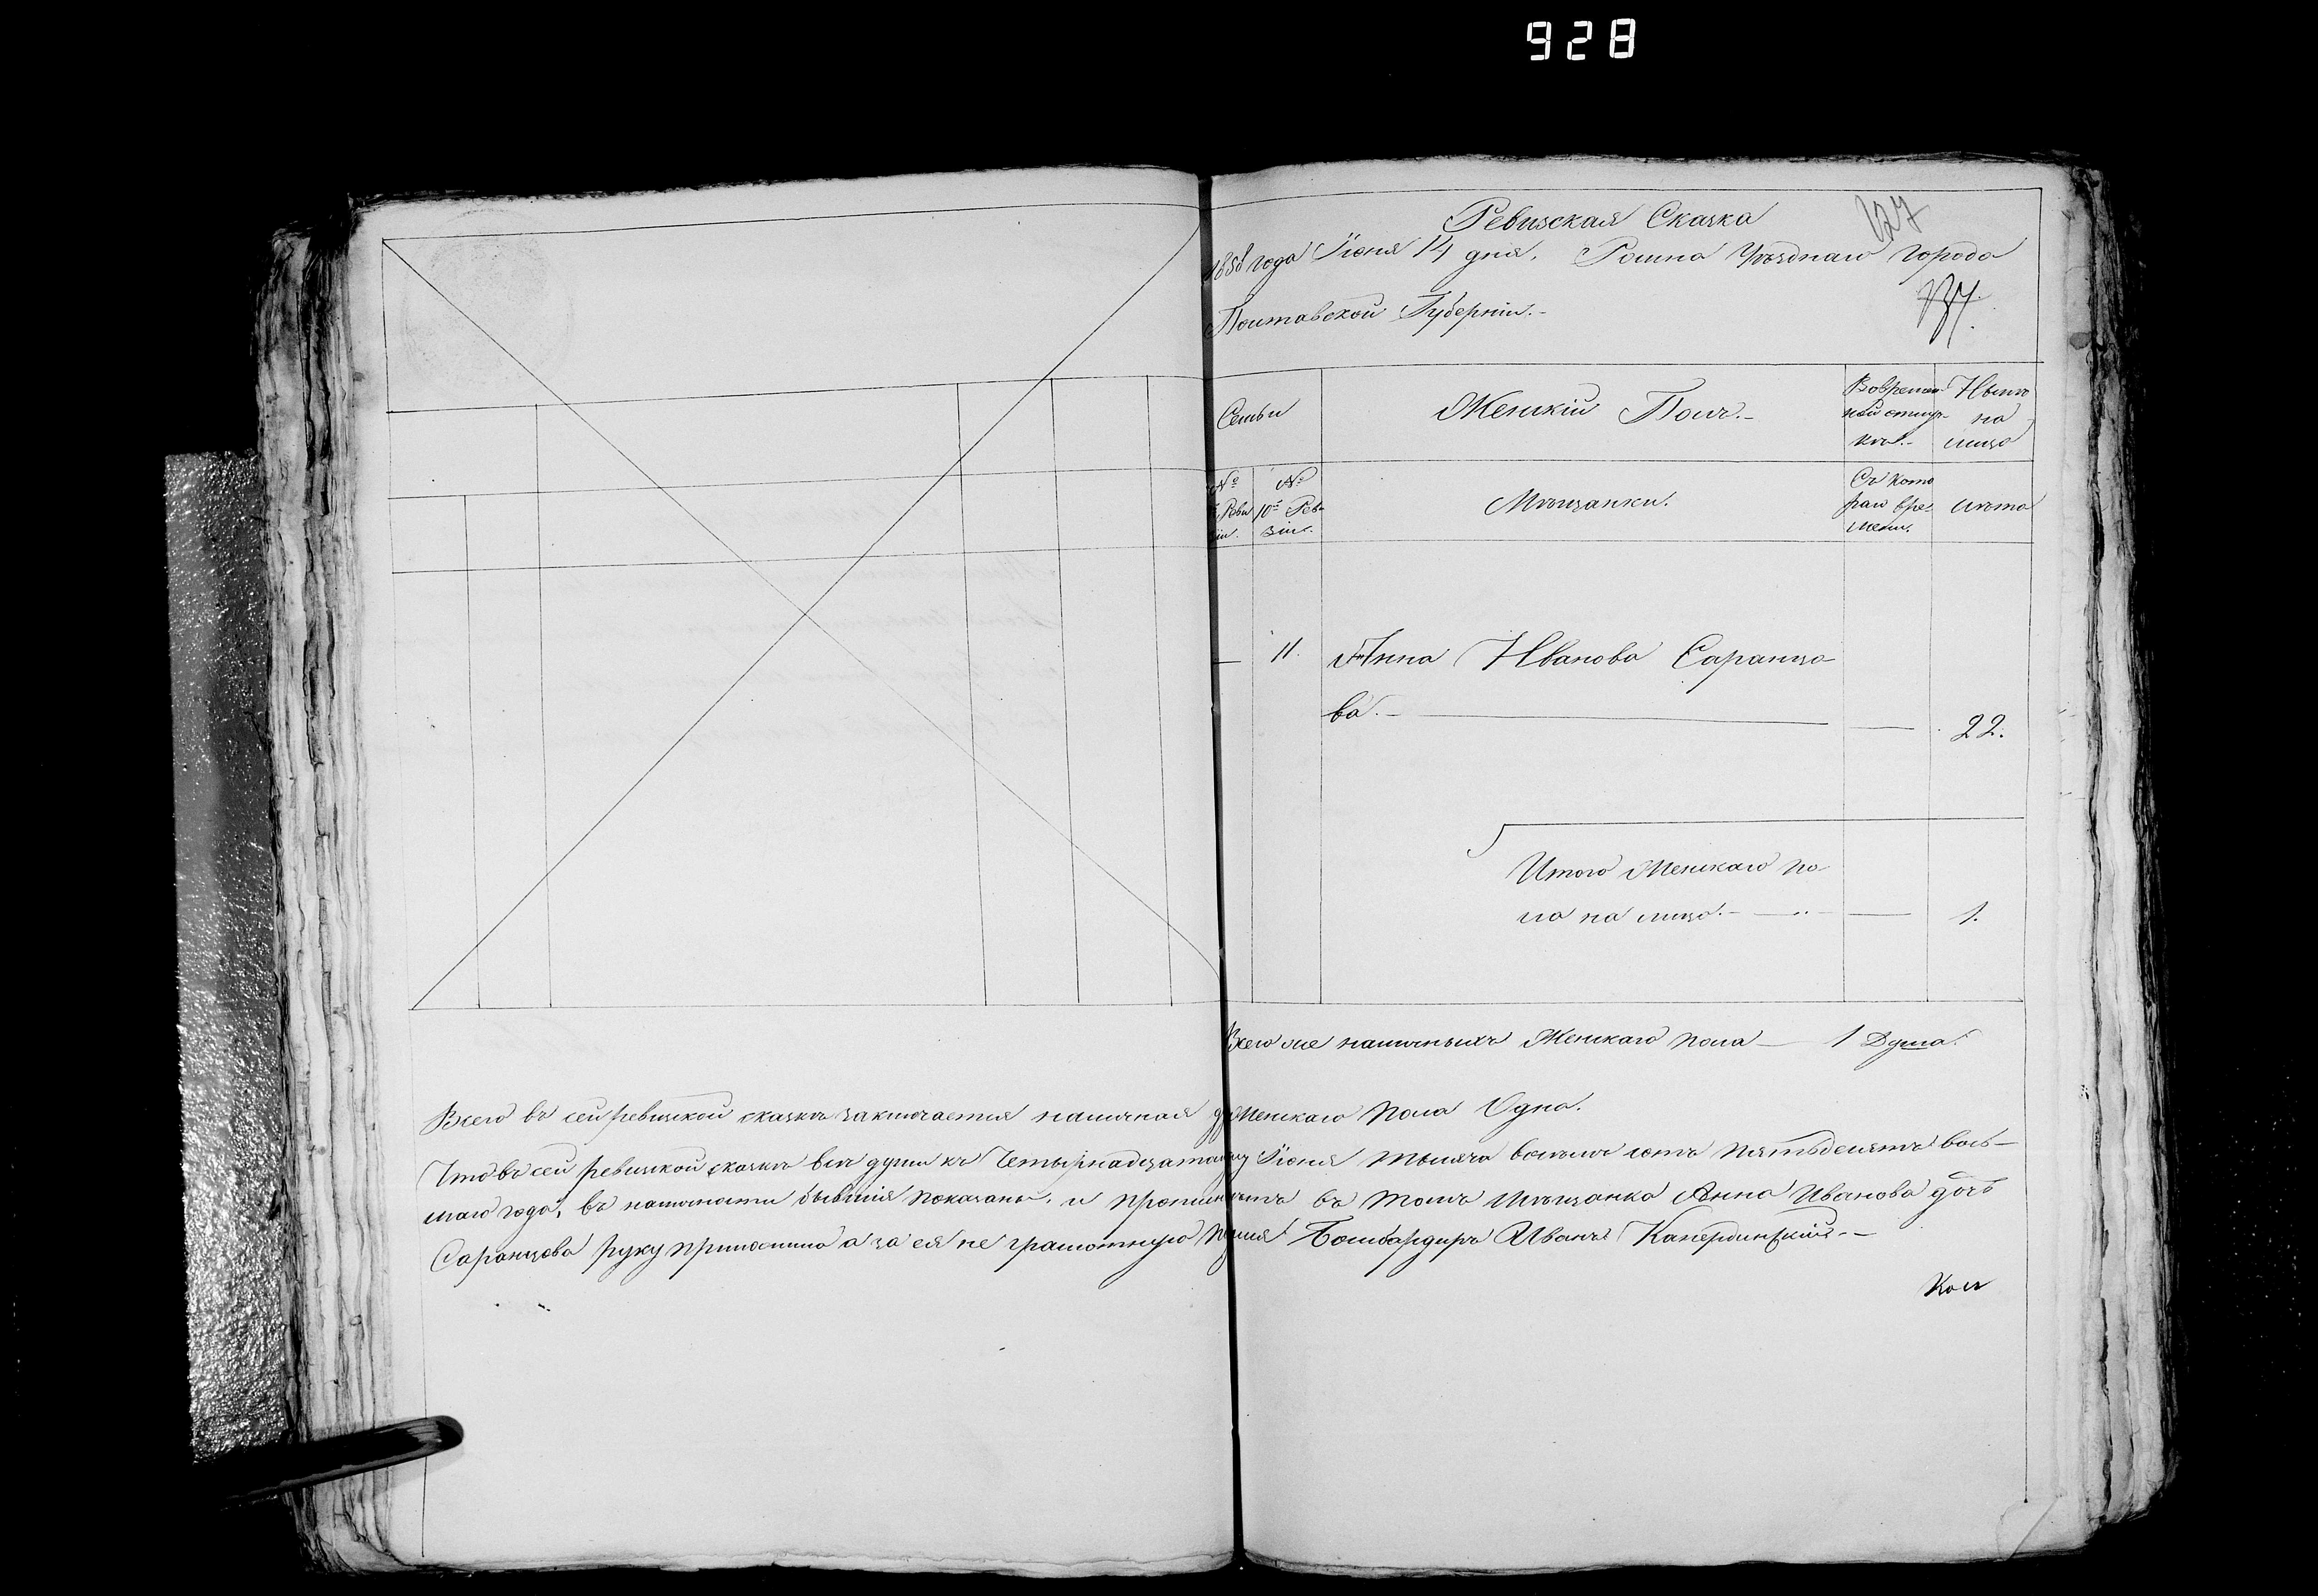 928
Ревизская Сказка
127
1858 года Іюня 14 дня, Ромна Уѣзднаго города
Полтавской Губерніи.-
Семьи
Женскій Полъ.-
Вовремен-
ной отлуч-
кѣ.-
Нынѣ
на
лицо
№
Реви
зіи.
№
10й Реви
зіи.
Мѣщанки.
Съ кото
раго вре-
мени.
лѣта
— 11. Анна Иванова Саранцо-
ва.- — — 22.
Итого Женскаго по
ла на лицо.- — — 1.
Всего же наличныхъ Женскаго пола — 1 Душа.
Всего въ сей ревизской сказкѣ заключается наличная Женскаго пола Одна.
Что въ сей ревизской сказкѣ всѣ души къ Четырнадцатому Іюня тысяча восемь сотъ пятьдесятъ вось-
маго года, въ наличности бывшія показаны, и прописныхъ въ томъ мѣщанка Анна Иванова дочь
Саранцова руку приложила а за ея не грамотную Бомбардиръ Иванъ
Кол